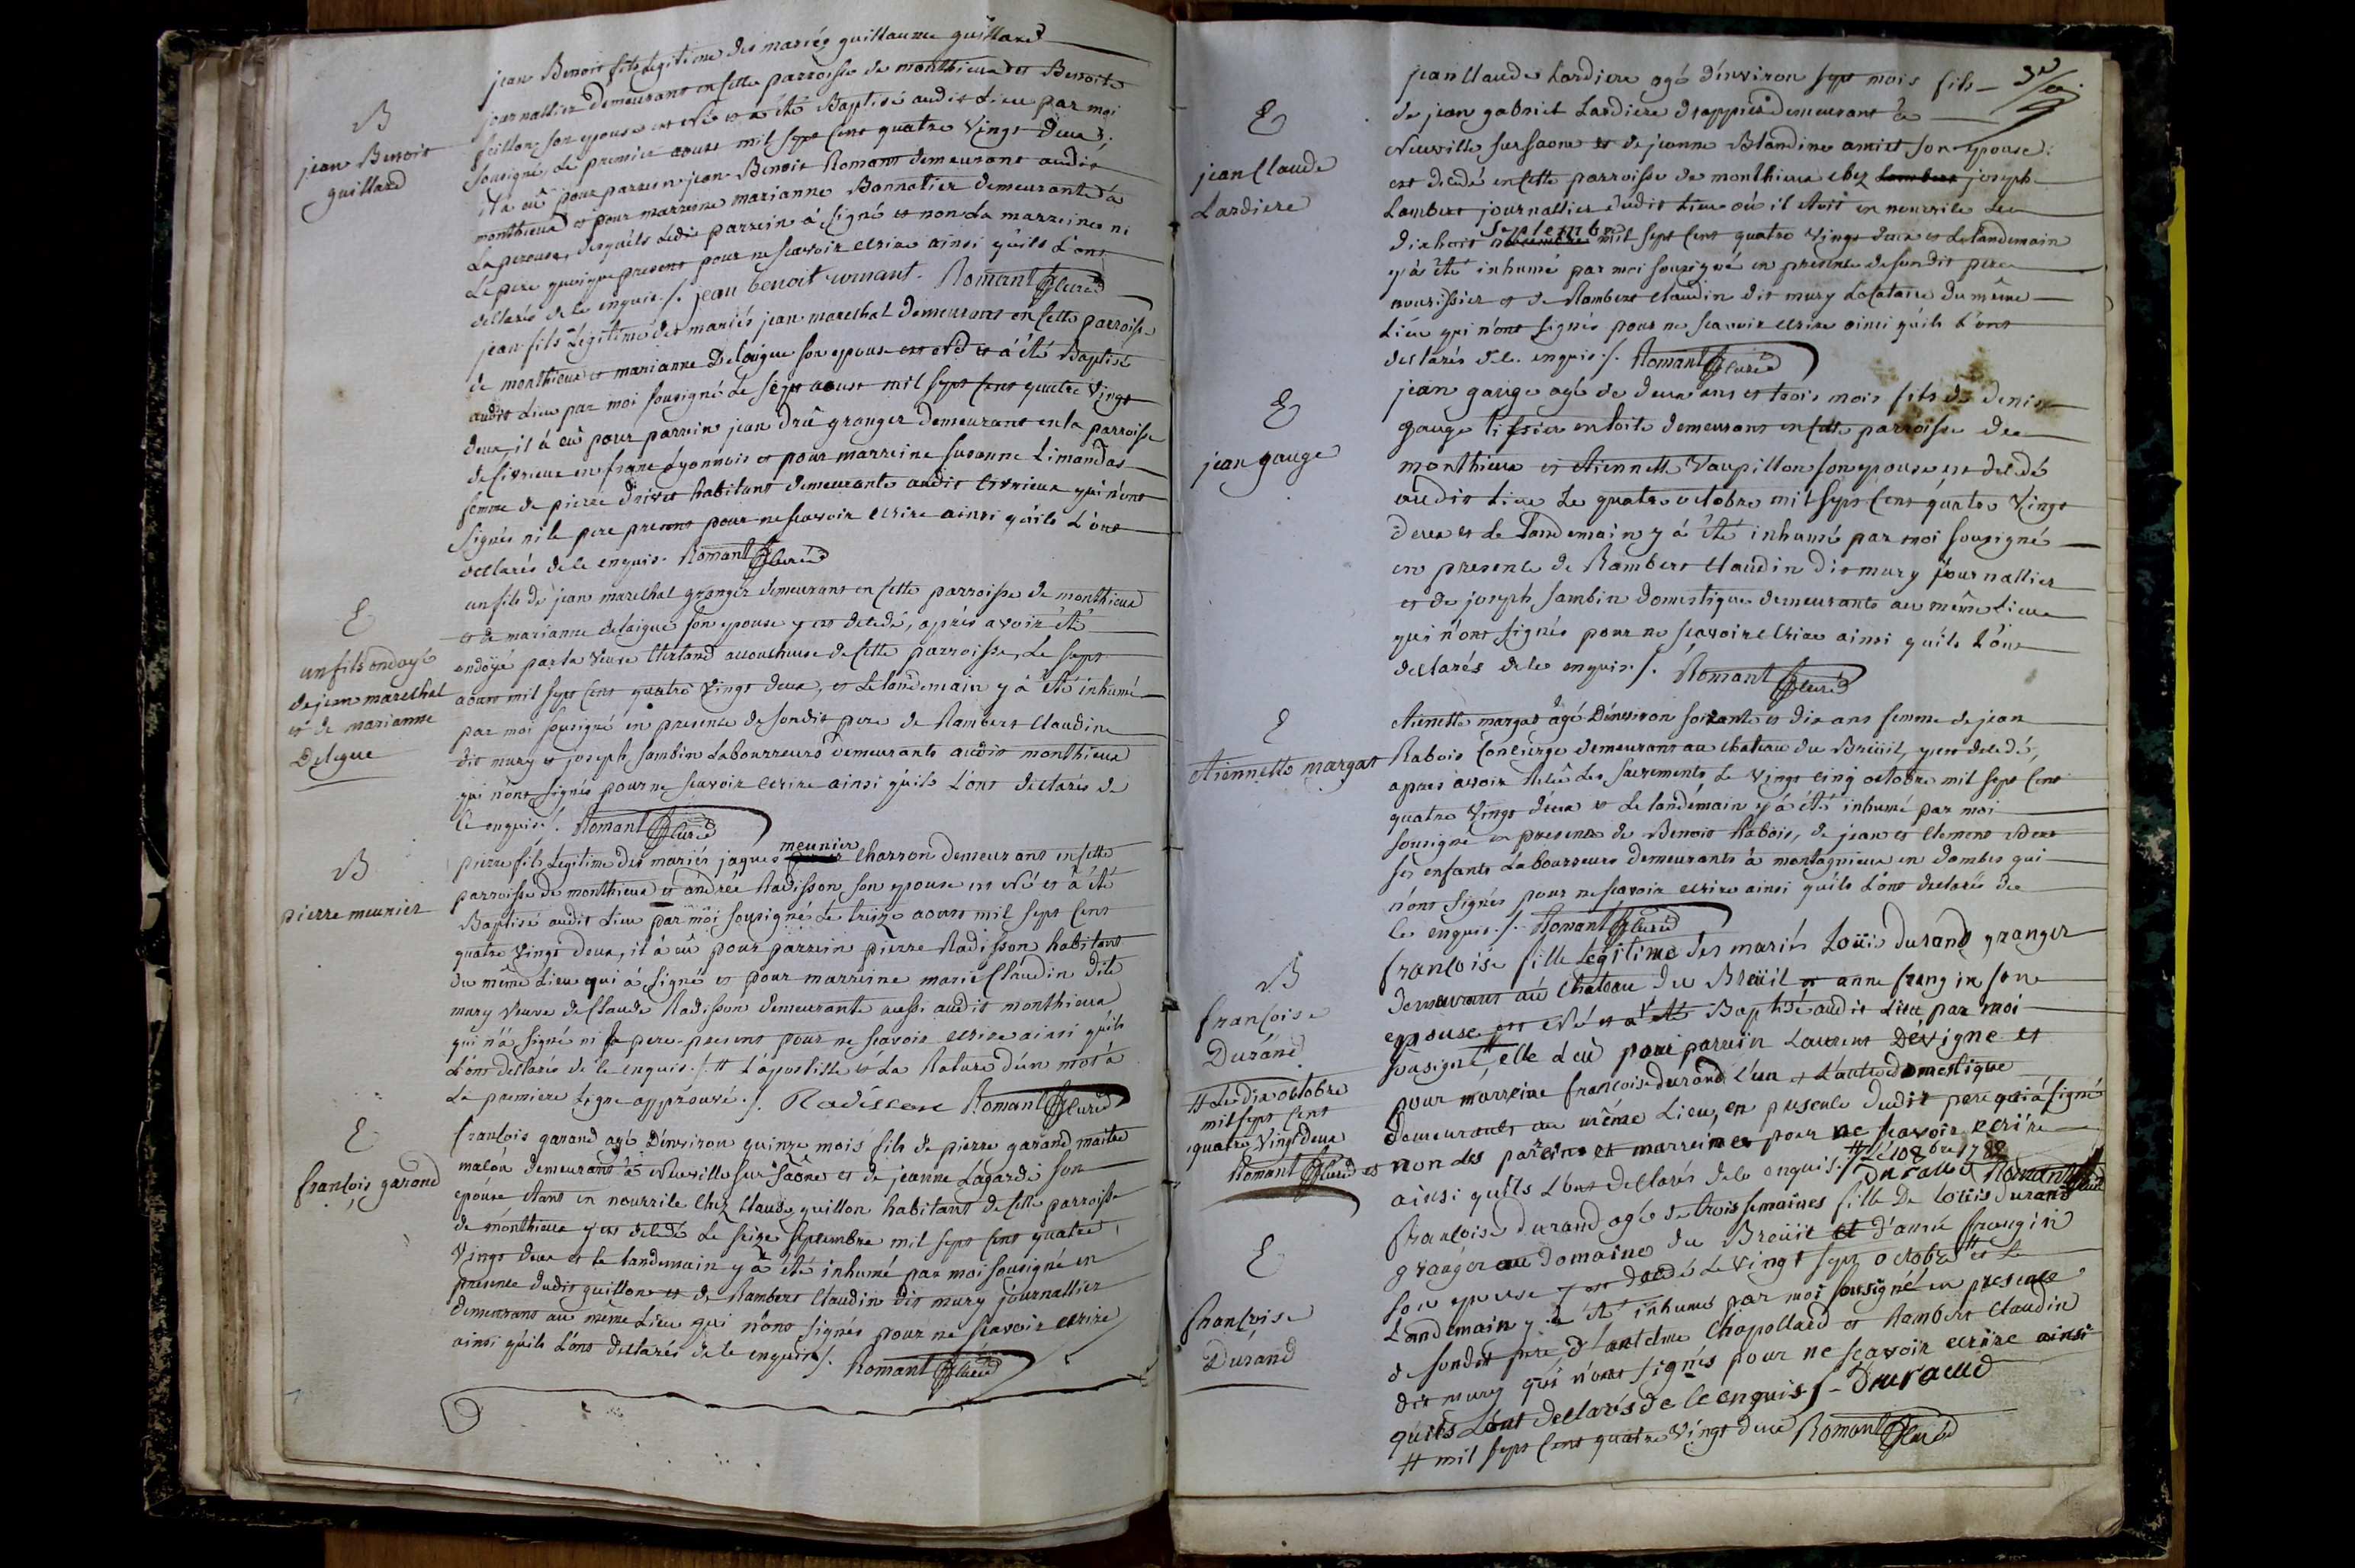 B
jean Benoit
guillard
jean Benoit fils Legitime des mariés guillaume guillard
journallier demeurant en cette parroisse de monthieux et Benoite
feillon son epouse est né et a été Baptisé audit Lieu par moi
sousigné, Le premier aoust mil sept cent quatre vingt deux,
il a eû pour parrein jean Benoit Romant demeurant audit
monthieux et pour marreine marianne Bonnatier demeurante à
Laperouse, desquels Ledit parrein à signé et non La marreine ni
Le pere quoique present pour ne scavoir ecrire ainsi qu'ils L'ont
declarés de ce enquis ./. jean benoit romant. Romant Curé
jean fils Legitime des mariés jean marechal demeurant en cette parroisse
de monthieux et marianne Delaigue son epouse est né et à été Baptisé
audit Lieu par moi sousigné Le sept aoust mil sept cent quatre vingt
deux, il à eû pour parrein jean drû granger demeurant en la parroisse
de Civrieux en franc Lyonnois et pour marreine susanne Limandas
femme de pierre habitant demeurante audit Civrieux qui n'ont
signés ni le pere present pour ne scavoir ecrire ainsi qu'ils L'ont
declarés de ce enquis. Romant Curé
E
un fils ondoyé
de jean marechal
et de marianne
Delegue
un fils de jean marechal granger demeurant en cette parroisse de monthieux
et de marianne delaigue son epouse y est decedé, après avoir été
ondoyé par la veuve accoucheuse de cette parroisse, Le sept
aoust mil sept cent quatre vingt deux, et Le landemain y à été inhumé
par moi sousigné en presence de sondit pere de Rambert Claudin
dit mury et joseph sambin Labourreurs demeurants audit monthieux
qui n'ont signés pour ne scavoir ecrire ainsi qu'ils L'ont declarés de
ce enquis ./. Romant Curé
B
pierre meunier
meunier
pierre fils Legitime des mariés jaques Charron demeurant en cette
parroisse de monthieux et andrée Radisson son epouse est né et à été
Baptisé audit Lieu par moi sousigné Le treize aoust mil sept cent
quatre vingt deux, il à eû pour parrein pierre Radisson habitant
du même Lieu qui à signé et pour marreine marie Claudin dite
mury veuve de Claude Radisson demeurante aussi audit monthieux
qui n'à signé ni le pere present pour ne scavoir ecrire ainsi qu'ils
L'ont declarés de ce enquis ./. # L'apostille et La Rature d'un mot à
La premiere Ligne approuvé ./. Radisson Romant Curé
E
françois garand
françois garand agé d'environ quinze mois fils de pierre garand maitre
maçon demeurant à Neuville sur Saône et de jeanne Lagarde son
epouse etant en nourrice Chez Claude guillon habitant de cette parroisse
de monthieux y est decedé Le seize septembre mil sept cent quatre
vingt deux et le landemain y à été inhumé par moi sousigné en
presence dudit guillon et de Rambert Claudin dit mury journallier
demeurant au même Lieu qui n'ont signés pour ne scavoir ecrire
ainsi qu'ils L'ont declarés de ce enquis ./. Romant Curé
E
jean Claude
Lardiere
jean Claude Lardiere agé d'environ sept mois fils
de jean gabriel Lardiere drappier demeurant à
Neuville sur saone et de jeanne Blandine amiet son epouse
est decedé en cette parroisse de monthieux chez Lambert joseph
Lambert journallier dudit Lieu où il etoit en nourrice Le
septembre
dixhuit novembre mil sept cent quatre vingt deux et Le landemain
y à été inhumé par moi sousigné en presence de sondit pere
nourissier et de Rambert Claudin dit mury Locataire du même
Lieu qui n'ont signés pour ne scavoir ecrire ainsi qu'ils L'ont
declarés de ce enquis ./. Romant Curé
E
jean gauge
jean gauge agé de deux ans et trois mois fils de denis
gauge tissier en toile demeurant en cette parroisse de
monthieux et etiennette Vaupillon son epouse est decedé
audit Lieu Le quatre octobre mil sept cent quatre vingt
deux et Le landemain y à été inhumé par moi sousigné
en presence de Rambert Claudin dit mury journallier
et de joseph sambin domestique demeurants au même Lieu
qui n'ont signés pour ne scavoir ecrire ainsi qu'ils L'ont
declarés de ce enquis ./. Romant Curé
E
etiennette margat
etiennette margat agé d'environ soixante et dix ans femme de jean
Rabois Concierge demeurant au chateau du Breüil, y est decedé,
apres avoir Reçû Les sacrements Le vingt cinq octobre mil sept cent
quatre vingt deux et Le landemain y à été inhumé par moi
sousigné en presence de Benoit Rabois, de jean et Clement
ses enfants Labourreurs demeurants à montagnieux en dombes qui
n'ont signés pour ne scavoir ecrire ainsi qu'ils L'ont declarés de
ce enquis ./. Romant Curé
B
françoise
Durand
# Le dix octobre
mil sept cent
quatre vingt deux
Romant Curé
françoise fille Legitime des mariés Loüis durand granger
demeurant au Chateau du Breüil et anne frangin son
epouse est née et a été Baptisé audit Lieu par moi
sousigné #, elle à eû pour parrein Laurent Devigne et
pour marreine françoise durand l'un et L'autre domestique
demeurants au même Lieu, en presence dudit pere qui à signé
et non les parrein et marreines pour ne scavoir ecrire
ainsi qu'ils L'ont declarés de ce enquis ./. # Le 10 8bre 1782
durand Romant Curé
E
françoise
Durand
françoise durand agée de trois semaines fille de Loüis durand
granger au domaine du Breüil et d'anne frangin
son epouse y est decedé Le vingt sept octobre # et Le
Landemain y à été inhumé par moi sousigné en presence
de sondit pere d'antelme Chapollard et Rambert Claudin
dit mury qui n'ont signés pour ne scavoir ecrire ainsi
qu'ils L'ont declarés de ce enquis ./. Durand
# mil sept cent quatre vingt deux Romant Curé